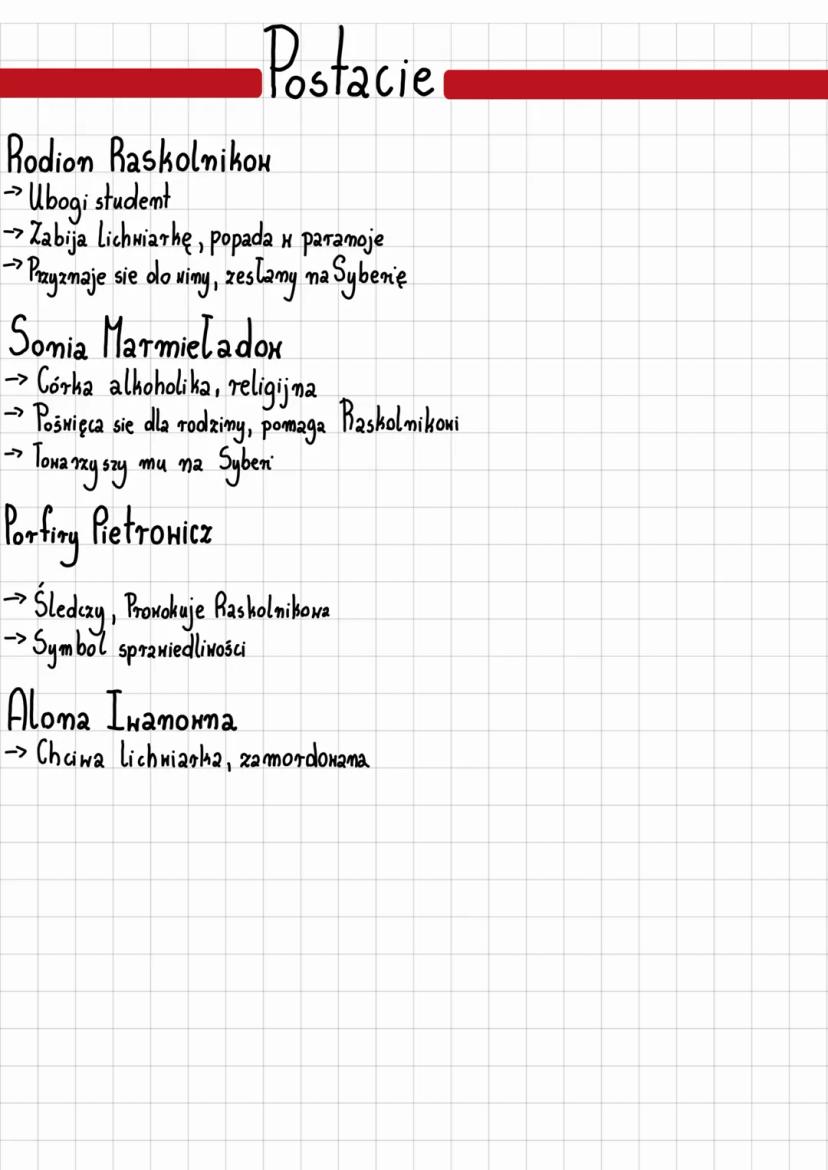 Postacie
Rodion Raskolnikow
→ Ubogi student
→ Zabija lichwiarkę, popada w paranoje
→ Przyznaje sie do winy, zesłany na Syberię
Sonia Marmieładow
→ Córka alkoholika, religijna
→ Poświęca sie dla rodziny, pomaga Raskolnikowi
→ Towarzyszy mu na Syberi
Porfiry Pietrowicz
→ Śledczy, Prowokuje Raskolnikowa
→ Symbol sprawiedliwości
Alona Iwanowna
→ Chciwa lichwiarka, zamordowana